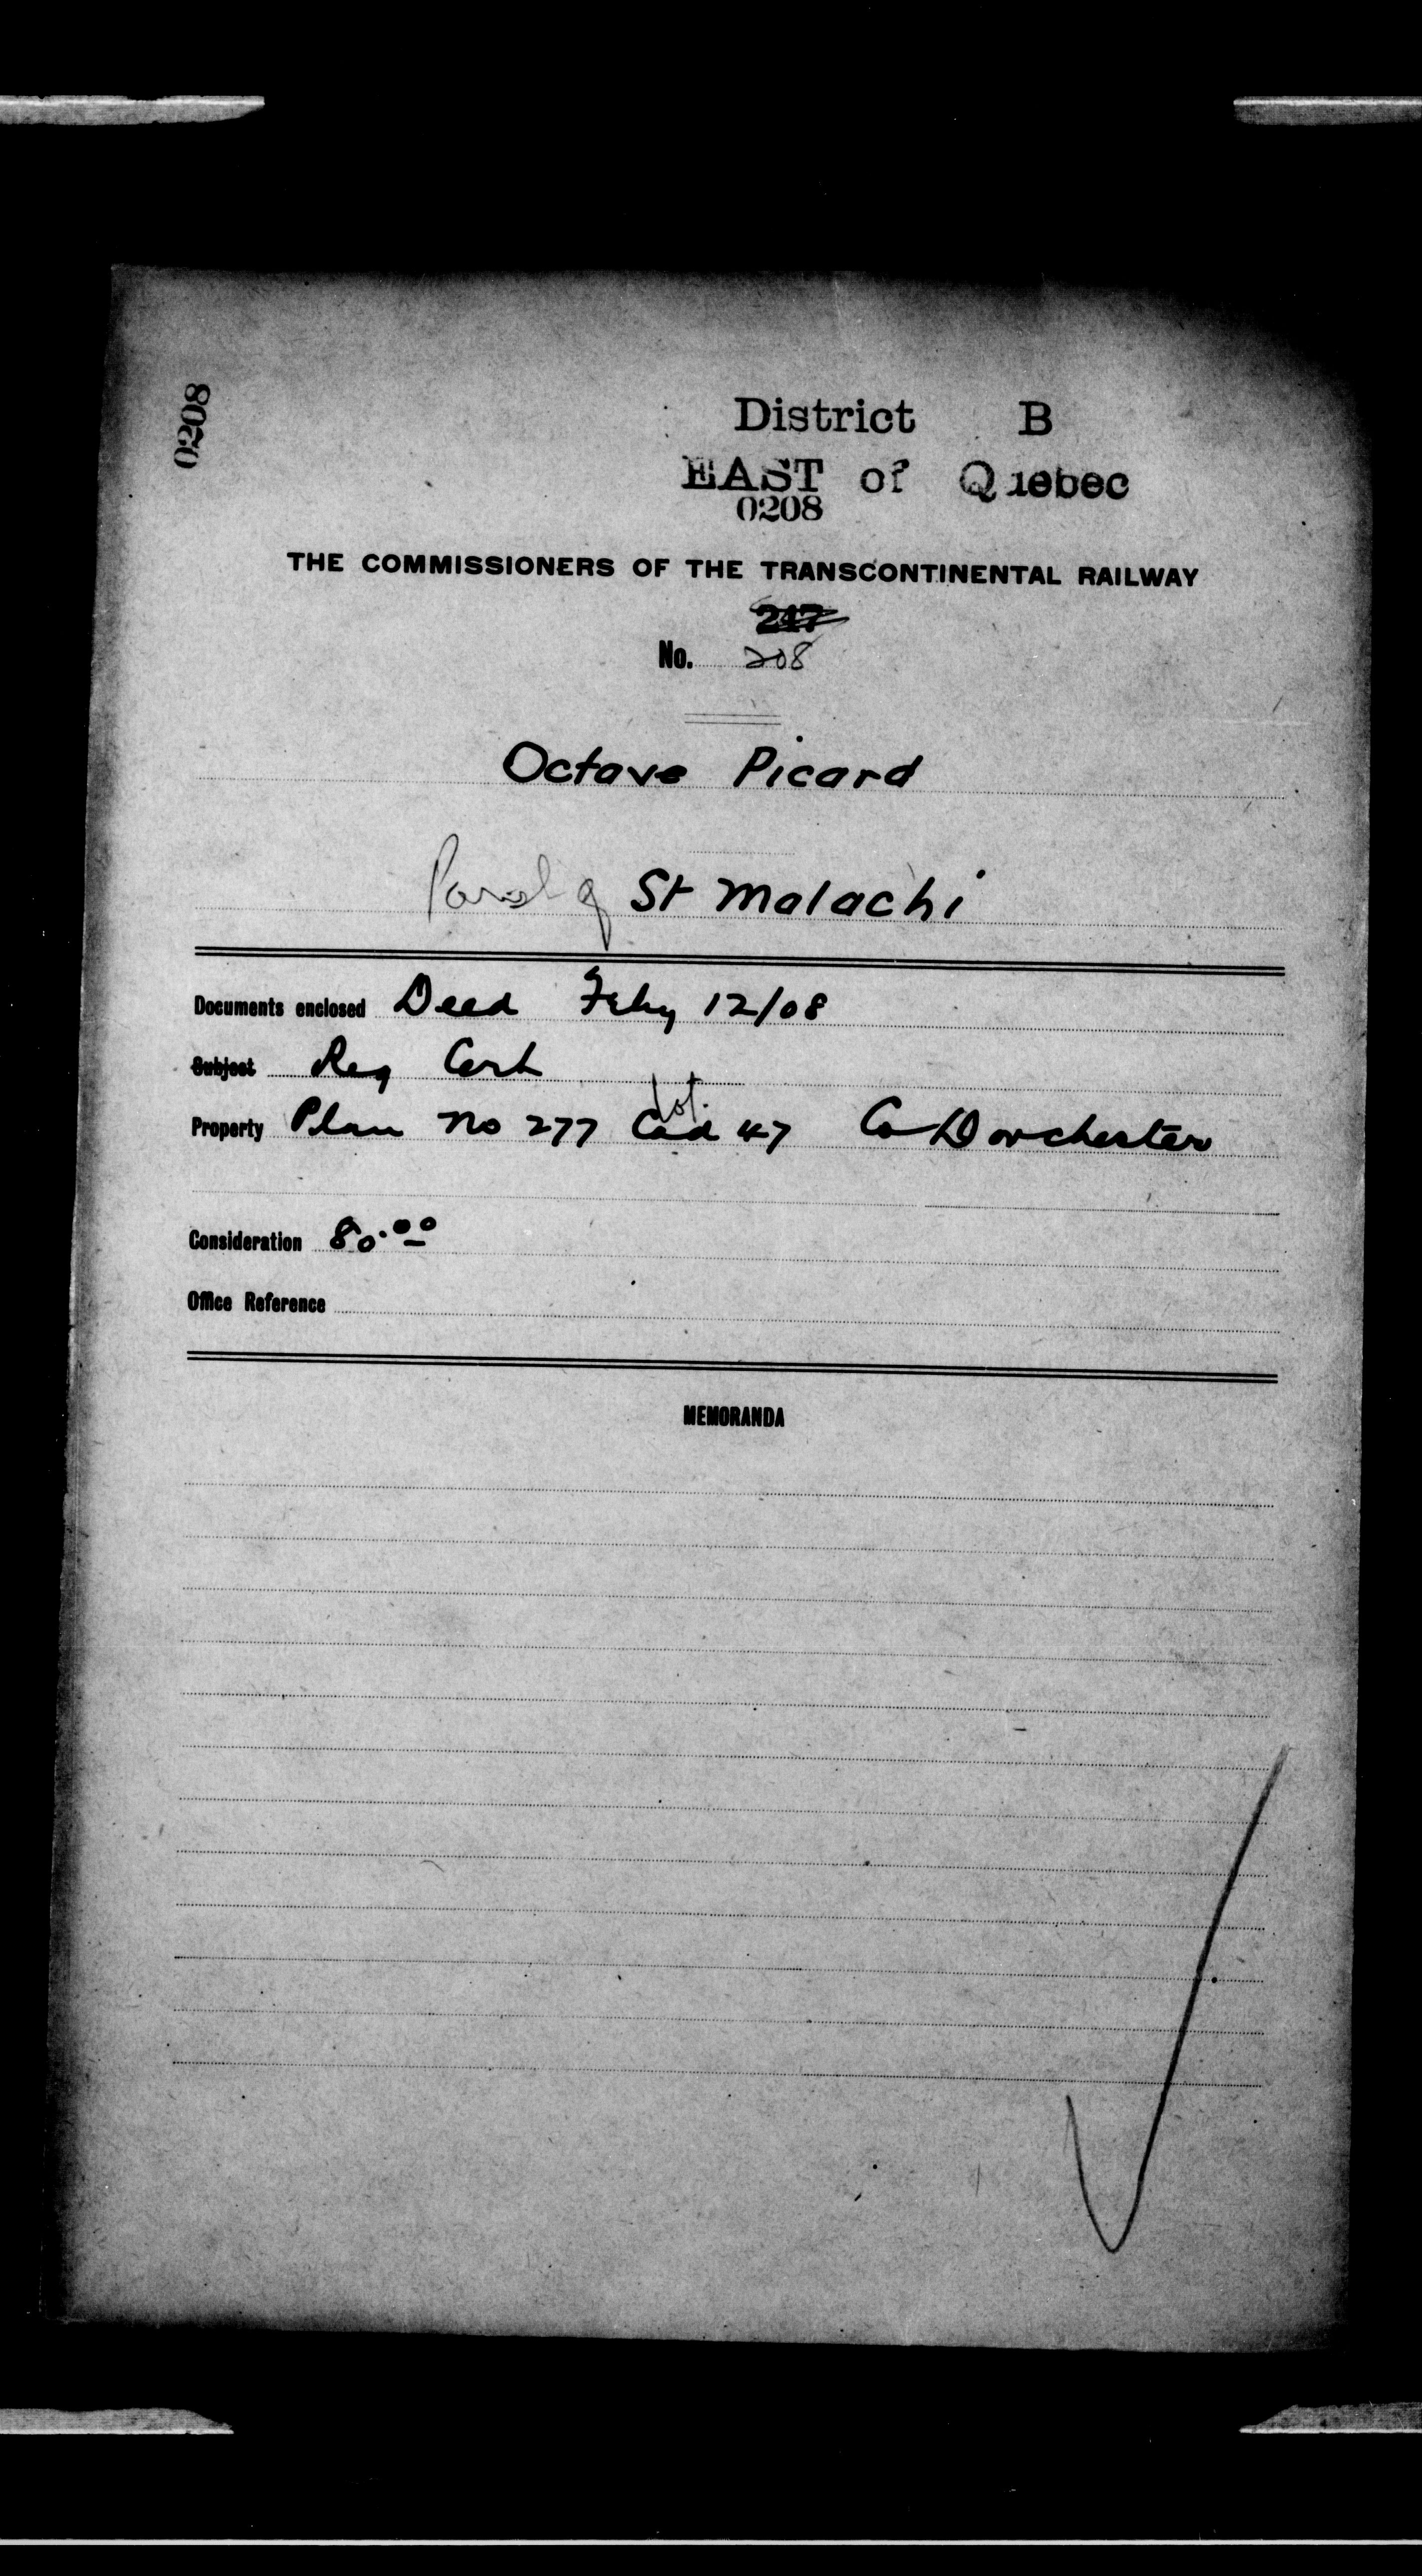 0208
District B
EAST of Quebec
0208
THE COMMISSIONERS OF THE TRANSCONTINENTAL RAILWAY
247
No. 208
Octave Picard
Parish of St Malachi
Documents enclosed Deed Feby 12/08
Subject Reg Cert
lot.
Property Plan No 277 Cad 47 Co Dorchester
Consideration 80.00
Office Reference
MEMORANDA